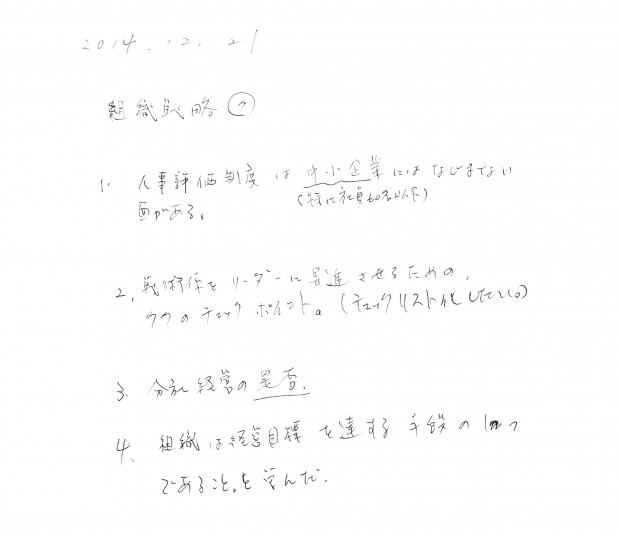 2014.12.21
組織戦略②
1. 人事評価制度は中小企業にはなじまない
(特に社員60名以下)
面がある。
2. 戦術係をリーダーに昇進させるための、
のチェックポイント。(チェックリスト化したい。)
3. 分社経営の是否。
4. 組織は経営目標を達する手段の1つ
であること。を学んだ。